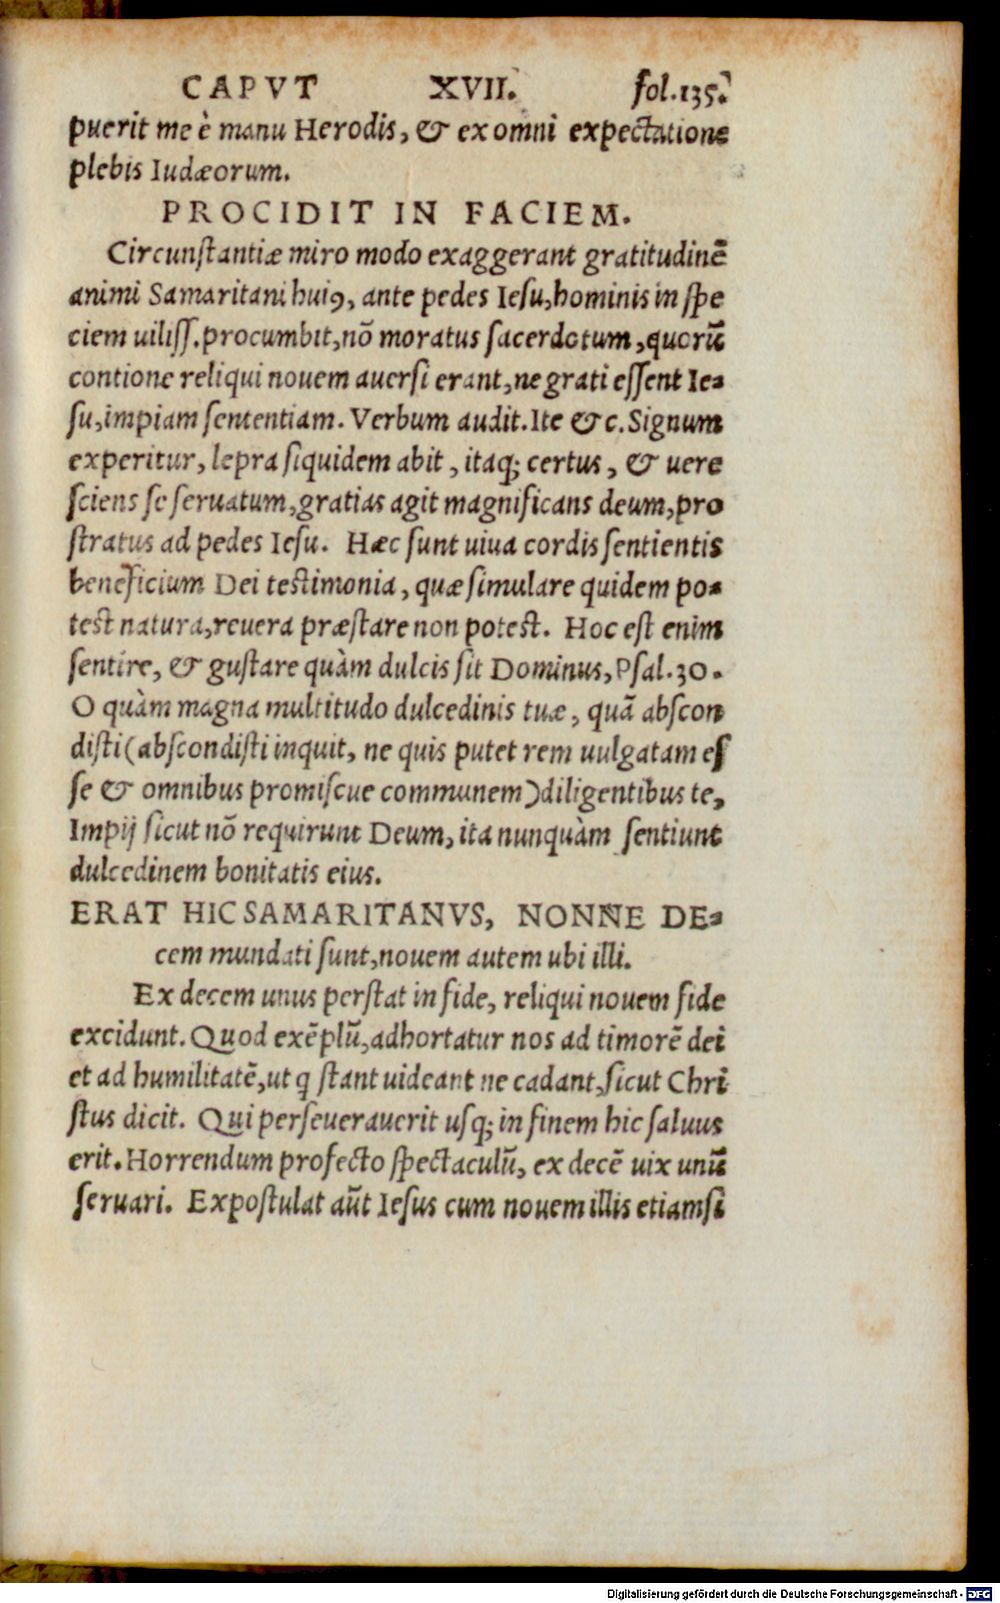 CAPVT XVII. fol.135.
puerit me è manu Herodis, & ex omni expectatione
plebis Iudæorum.
PROCIDIT IN FACIEM.
Circunſtantiæ miro modo exaggerant gratitudinẽ
animi Samaritani huiꝰ, ante pedes Ieſu, hominis in ſpe
ciem uiliſſ. procumbit, nõ moratus ſacerdotum, quorũ
contione reliqui nouem auerſi erant, ne grati eſſent Ie-
ſu, impiam ſententiam. Verbum audit. Ite &c. Signum
experitur, lepra ſiquidem abit, itaq; certus, & uere
ſciens ſe ſeruatum, gratias agit magnificans deum, pro
ſtratus ad pedes Ieſu. Hæc ſunt uiua cordis ſentientis
beneficium Dei teſtimonia, quæ ſimulare quidem po-
teſt natura, reuera præſtare non poteſt. Hoc eſt enim
ſentire, & guſtare quàm dulcis ſit Dominus, Pſal.30.
O quàm magna multitudo dulcedinis tuæ, quã abſcon
diſti (abſcondiſti inquit, ne quis putet rem uulgatam eſ
ſe & omnibus promiſcue communem) diligentibus te,
Impij ſicut nõ requirunt Deum, ita nunquàm ſentiunt
dulcedinem bonitatis eius.
ERAT HIC SAMARITANVS, NONNE DE-
cem mundati ſunt, nouem autem ubi illi.
Ex decem unus perſtat in fide, reliqui nouem fide
excidunt. Quod exẽplũ, adhortatur nos ad timorẽ dei
et ad humilitatẽ, ut q ſtant uideant ne cadant, ſicut Chri
ſtus dicit. Qui perſeuerauerit uſq; in finem hic ſaluus
erit. Horrendum profecto ſpectaculũ, ex decẽ uix unũ
ſeruari. Expoſtulat aũt Ieſus cum nouem illis etiamſi
Digitalisierung gefördert durch die Deutsche Forschungsgemeinschaft - DFG